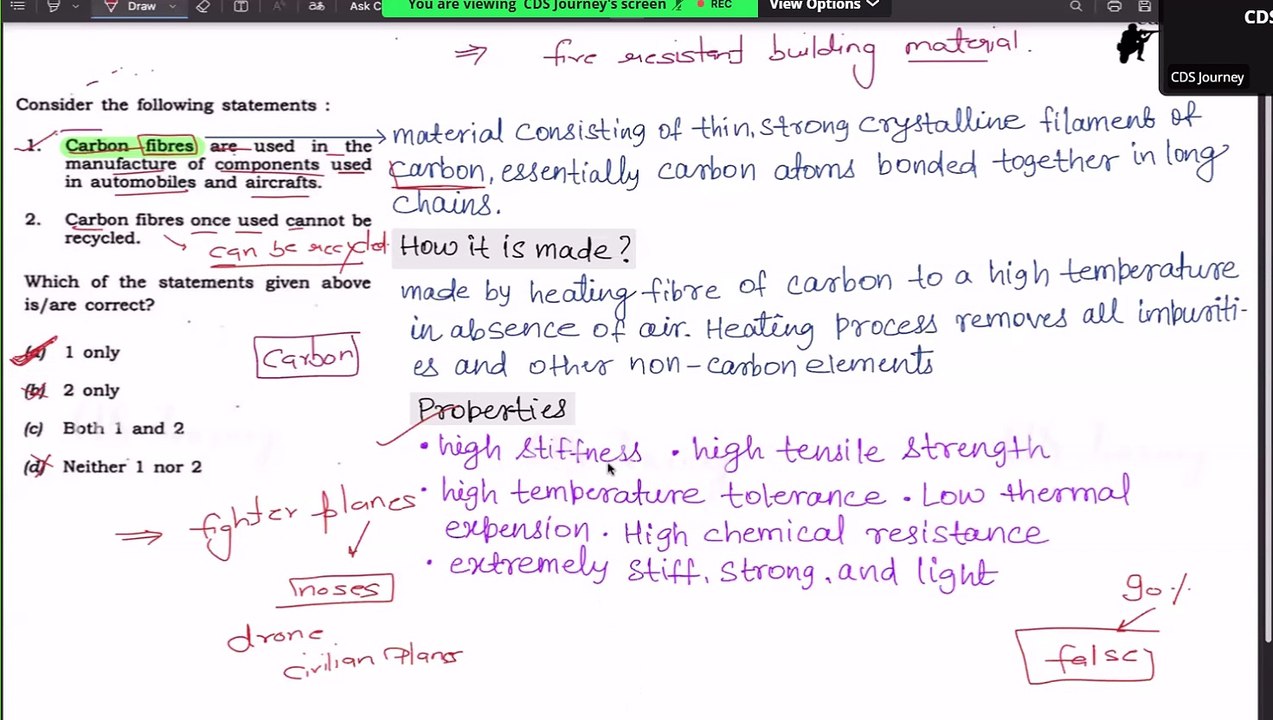 Draw
Ask C
You are viewing CDS Journey's screen
REC
View Options
CDS
CDS Journey
⇒ fire resistant building material.
Consider the following statements :
1. Carbon fibres are used in the
manufacture of components used
in automobiles and aircrafts.
2. Carbon fibres once used cannot be
recycled.
can be recycled
Which of the statements given above
is/are correct?
(a) 1 only
(b) 2 only
(c) Both 1 and 2
(d) Neither 1 nor 2
Carbon
material consisting of thin, strong crystalline filament of
carbon, essentially carbon atoms bonded together in long
chains.
How it is made?
made by heating fibre of carbon to a high temperature
in absence of air. Heating process removes all impuriti-
es and other non-carbon elements
Properties
• high stiffness • high tensile strength
• high temperature tolerance • Low thermal
expension • High chemical resistance
• extremely stiff, strong, and light
⇒ fighter planes
noses
drone
civilian Planes
90%
false